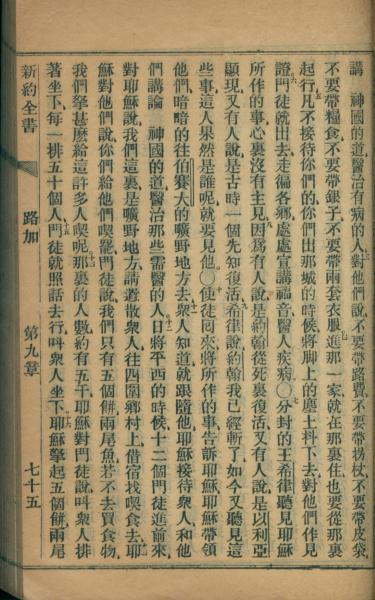 講 神國的道、醫治有病的人、三對他們說、不要帶路費、不要帶拐杖、不要帶皮袋、
不要帶糧食、不要帶銀子、不要帶兩套衣服、四進那一家、就在那裏住、也要從那裏
起行、五凡不接待你們的、你們出那城的時候、將脚上的塵土抖下去、對他們作見
證、六門徒就出去、走徧各鄉、處處宣講福音、醫人疾病。〇七分封的王希律聽見耶穌
所作的事、心裏沒有主見、因爲有人說、是約翰從死裏復活、八又有人說、是以利亞
顯現、又有人說、是古時一個先知復活、九希律說、約翰我已經斬了、如今又聽見這
些事、這人果然是誰呢、就要見他。〇十使徒回來、將所作的事告訴耶穌、耶穌帶領
他們、暗暗的往伯賽大的曠野地方去、十一衆人知道、就跟隨他、耶穌接待衆人、和他
們講論 神國的道、醫治那些需醫的人、十二日將平西的時候、十二個門徒進前來
對耶穌說、我們這裏是曠野地方、請遣散衆人往四圍鄉村上、借宿找喫食去、十三耶
穌對門徒說、你們給他們喫罷、門徒說、我們只有五個餅、兩尾魚、若不去買食物、
我們拏甚麽給這許多人喫呢、十四那裏的人數約有五千、耶穌對門徒說、叫衆人排
著坐下、每一排五十個人、十五門徒就照話去行、叫衆人坐下、十六耶穌拏起五個餅、兩尾
新約全書 路加 第九章 七十五